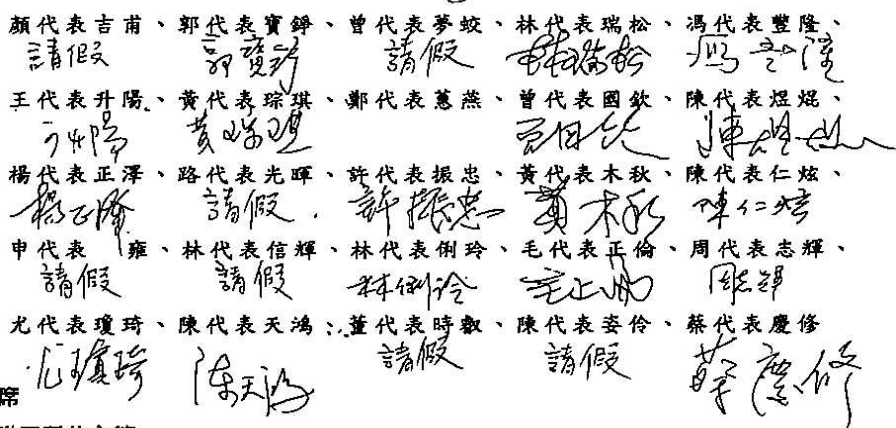 顏代表吉甫、郭代表寶錚、曾代表夢蛟、林代表瑞松、馮代表豐隆、
請假 郭寶錚 請假 林瑞松 馮豐隆
王代表升陽、黃代表琮琪、鄭代表蕙燕、曾代表國欽、陳代表煜焜、
王升陽 黃琮琪 曾國欽 陳煜焜
楊代表正澤、路代表光暉、許代表振忠、黃代表木秋、陳代表仁炫、
楊正澤 請假 許振忠 黃木秋 陳仁炫
申代表 雍、林代表信輝、林代表俐玲、毛代表正倫、周代表志輝、
請假 請假 林俐玲 毛正倫 周志輝
尤代表瓊琦、陳代表天鴻、董代表時叡、陳代表姿伶、蔡代表慶修
尤瓊琦 陈天鴻 請假 請假 蔡慶修
席